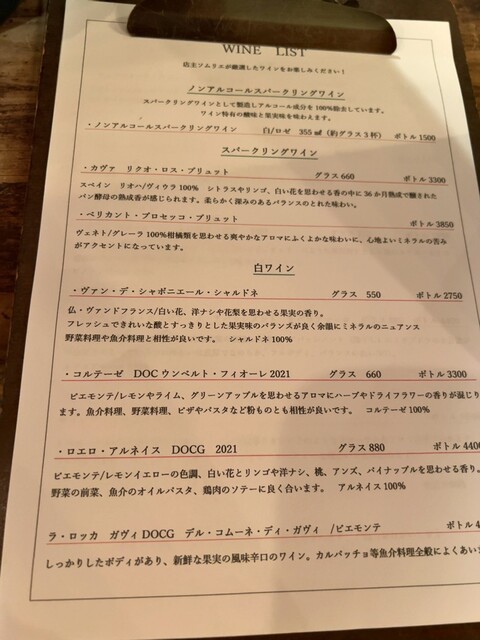 WINE LIST
店主ソムリエが厳選したワインをお楽しみください！
ノンアルコールスパークリングワイン
スパークリングワインとして製造しアルコール成分を100%除去しています。
ワイン特有の酸味と果実味を味わえます。
・ノンアルコールスパークリングワイン 白/ロゼ 355㎖（約グラス3杯） ボトル1500
スパークリングワイン
・カヴァ リクオ・ロス・ブリュット グラス660 ボトル3300
スペイン リオハ/ヴィウラ100% シトラスやリンゴ、白い花を思わせる香の中に36か月熟成で醸された
パン酵母の熟成香が感じられます。柔らかく深みのあるバランスのとれた味わい。
・ベリカント・プロセッコ・ブリュット ボトル3850
ヴェネト/グレーラ100%柑橘類を思わせる爽やかなアロマにふくよかな味わいに、心地よいミネラルの苦み
がアクセントになっています。
白ワイン
・ヴァン・デ・シャボニエール・シャルドネ グラス 550 ボトル2750
仏・ヴァンドフランス/白い花、洋ナシや花梨を思わせる果実の香り。
フレッシュできれいな酸とすっきりとした果実味のバランスが良く余韻にミネラルのニュアンス
野菜料理や魚介料理と相性が良いです。 シャルドネ100%
・コルテーゼ DOCウンベルト・フィオーレ2021 グラス 660 ボトル3300
ピエモンテ/レモンやライム、グリーンアップルを思わせるアロマにハーブやドライフラワーの香りが混じり
ます。魚介料理、野菜料理、ピザやパスタなど粉ものとも相性が良いです。 コルテーゼ100%
・ロエロ・アルネイス DOCG 2021 グラス880 ボトル4400
ピエモンテ/レモンイエローの色調、白い花とリンゴや洋ナシ、桃、アンズ、パイナップルを思わせる香り。
野菜の前菜、魚介のオイルパスタ、鶏肉のソテーに良く合います。 アルネイス100%
ラ・ロッカ ガヴィDOCG デル・コムーネ・ディ・ガヴィ /ピエモンテ ボトル4
しっかりしたボディがあり、新鮮な果実の風味辛口のワイン。カルパッチョ等魚介料理全般によくあいま